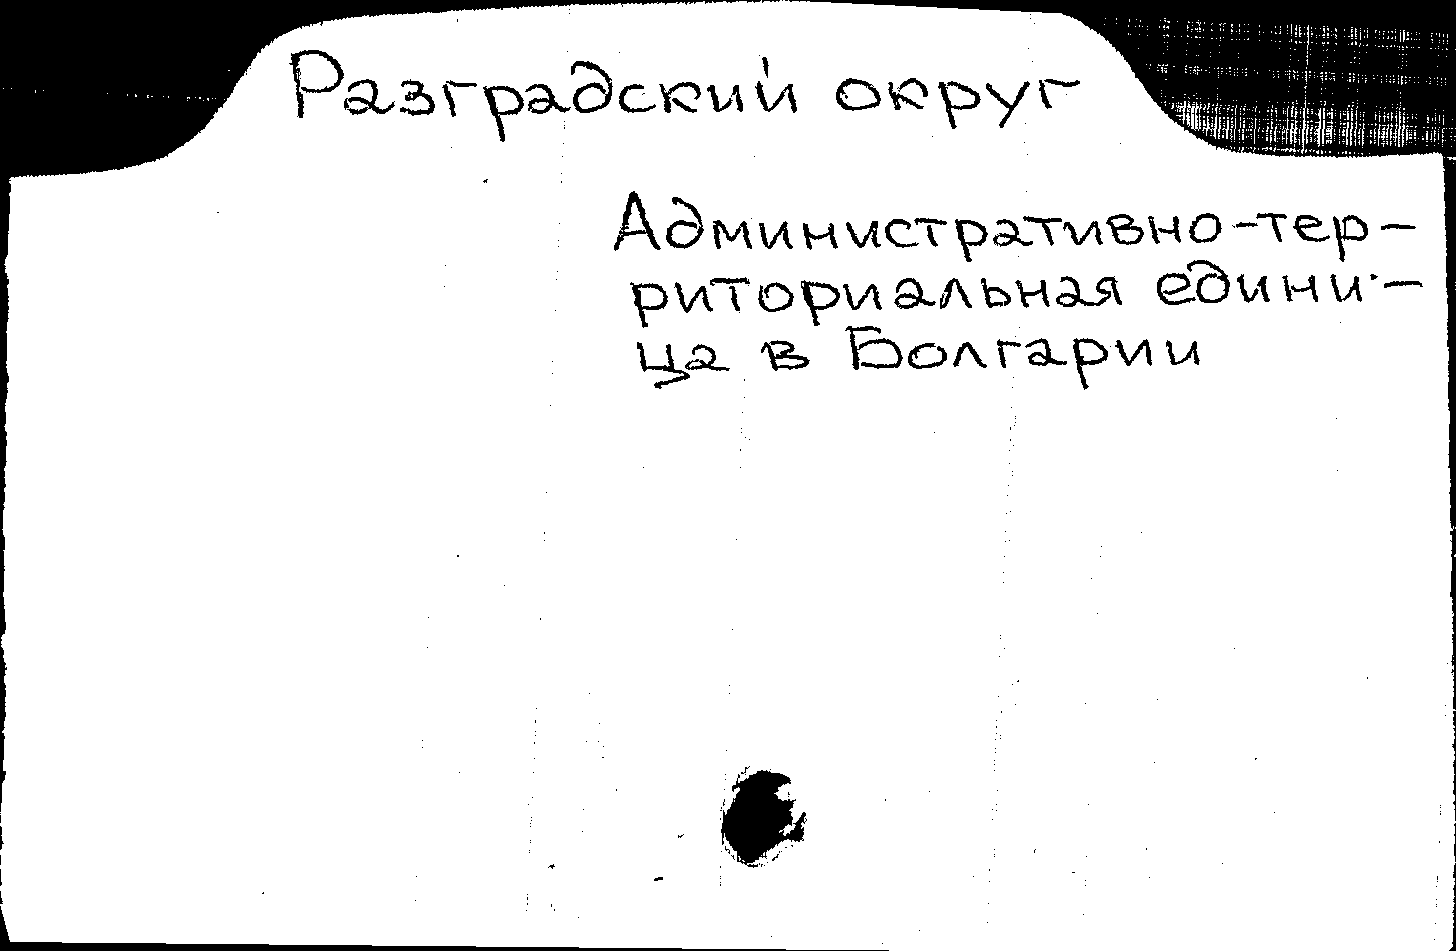 Разградский округ
Административно-тер-
риториальная едини-
ца в Болгарии